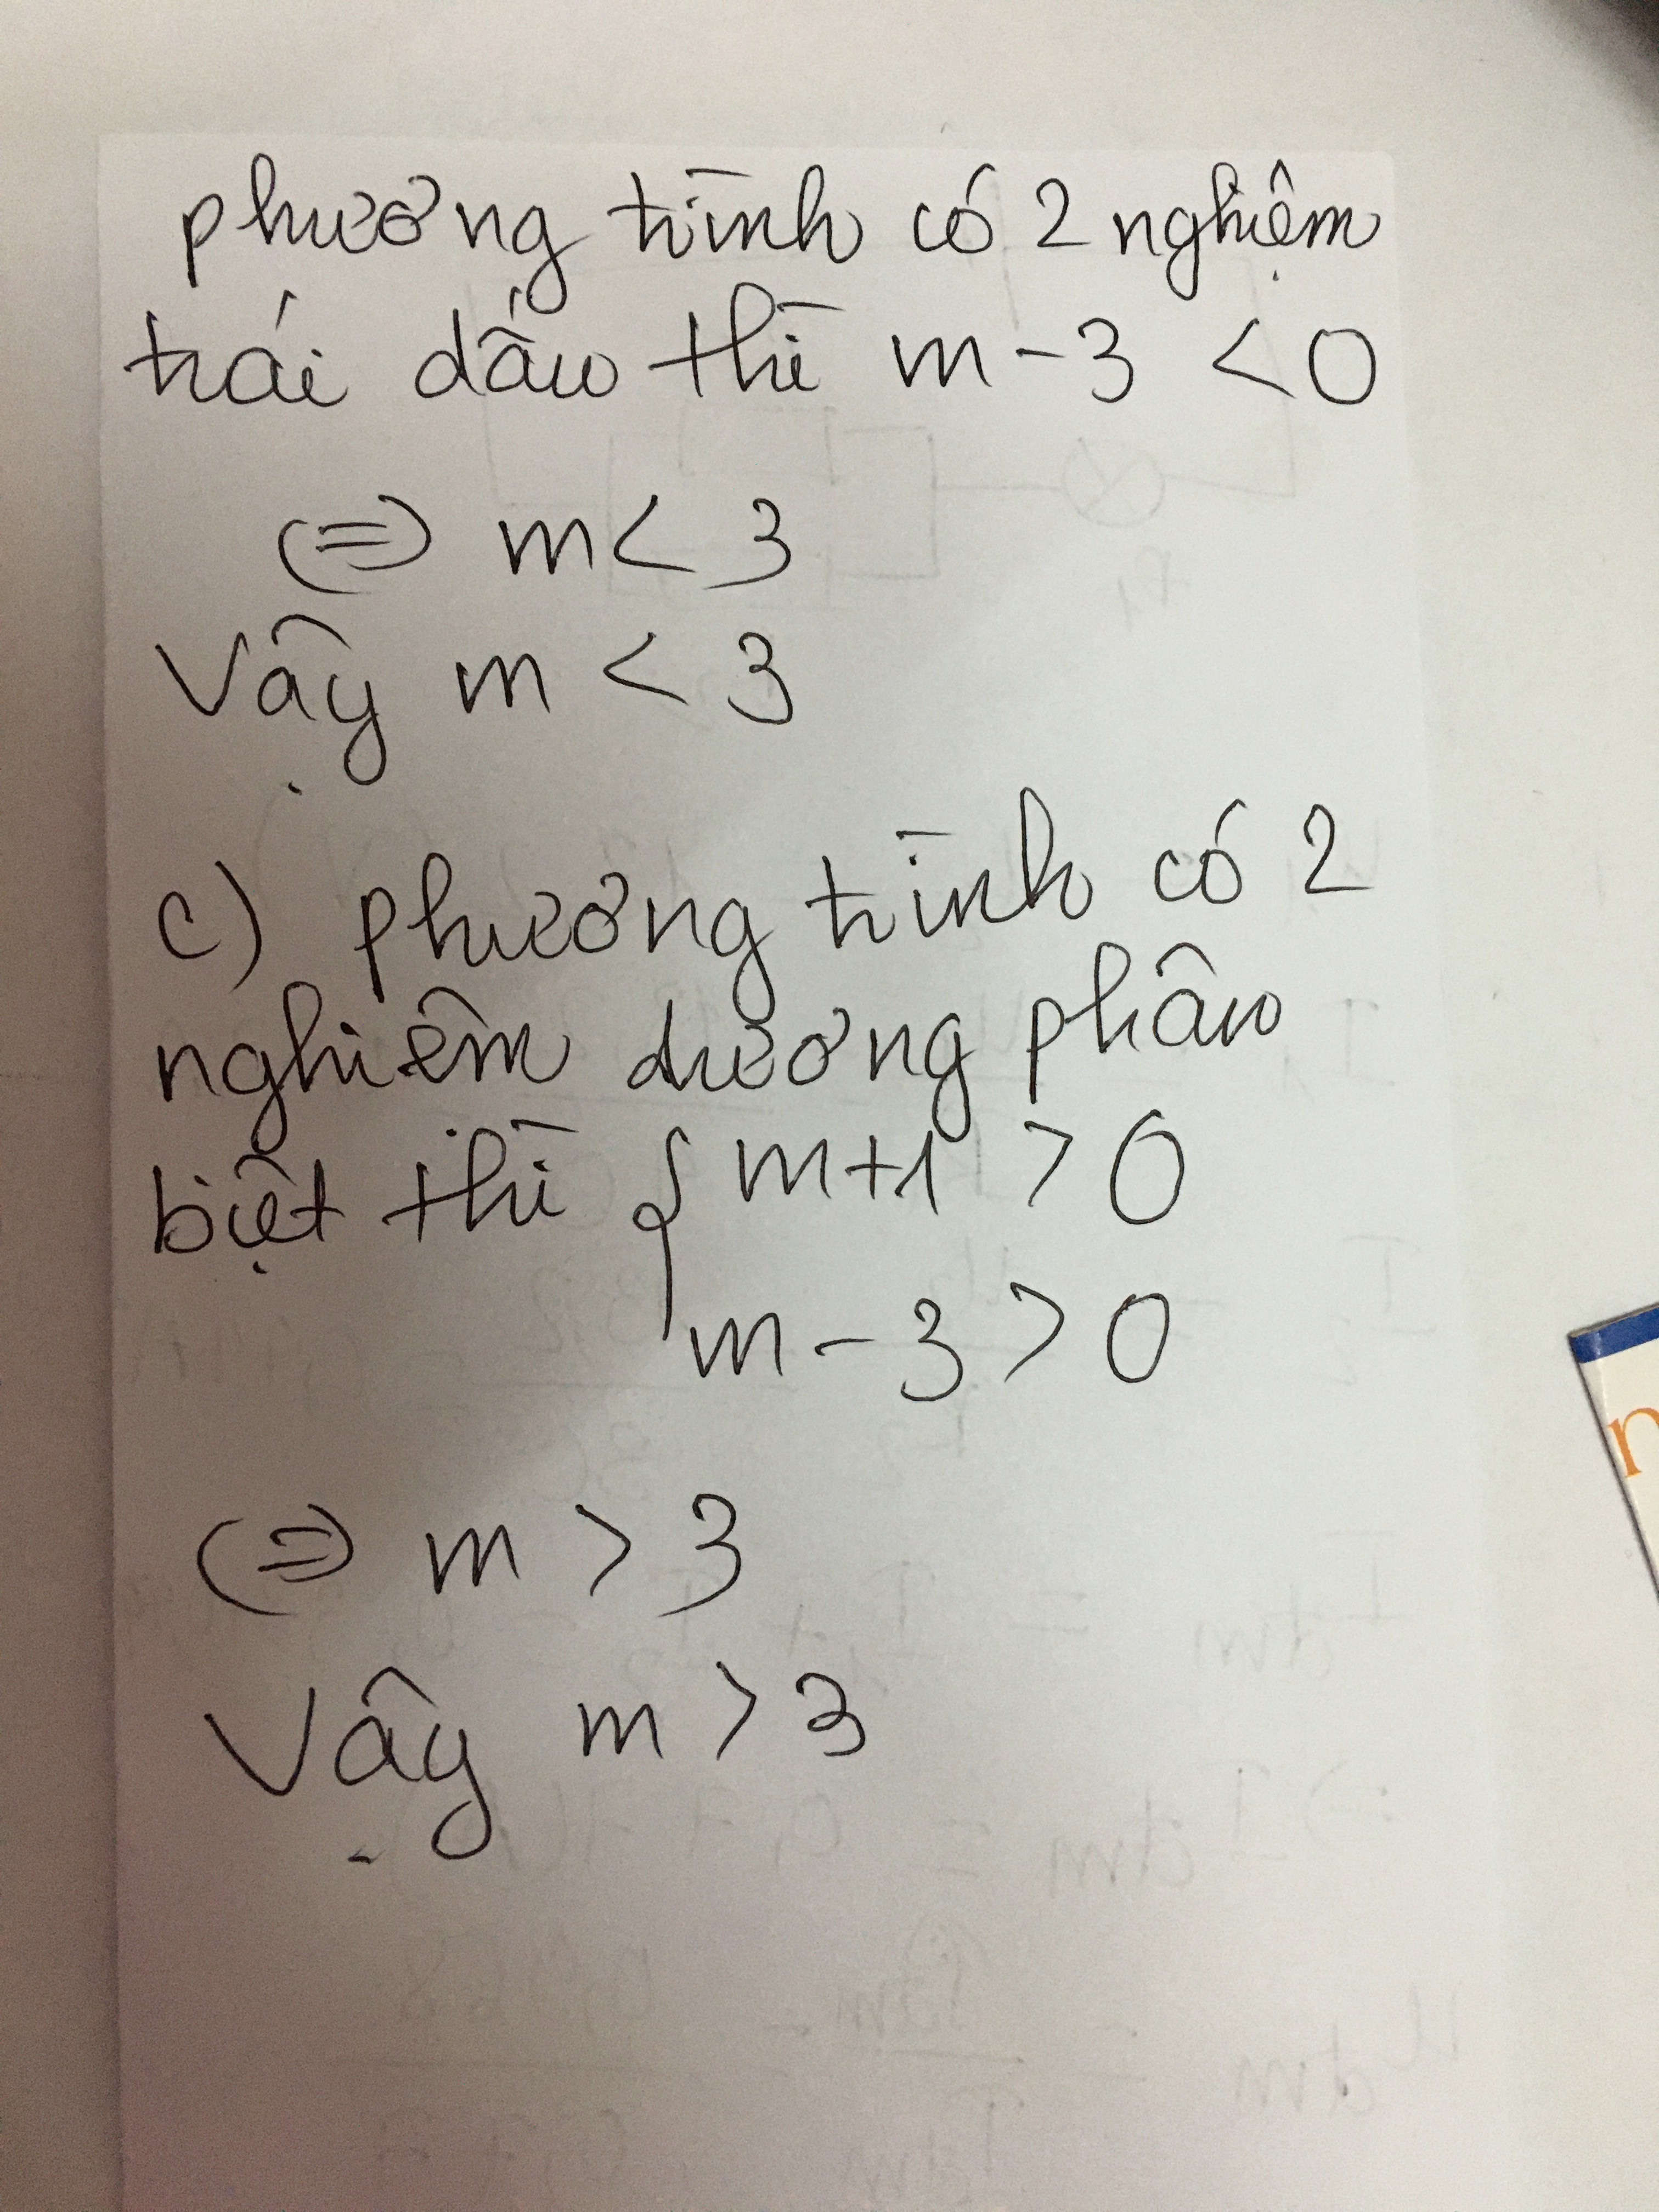 phương trình có 2 nghiệm
trái dấu thì m - 3 < 0
(=) m < 3
Vậy m < 3
c) phương trình có 2
nghiệm dương phân
biệt thì { m+1 > 0
m - 3 > 0
(=) m > 3
Vậy m > 3
n